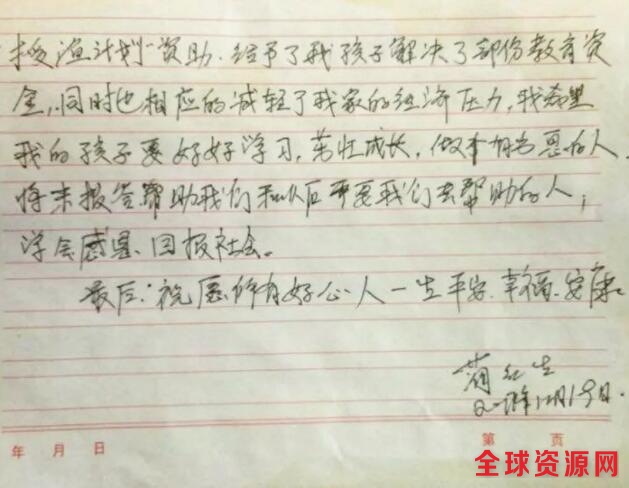 计划"资助.给予了我孩子解决了部份教育资
金,同时也相应的减轻了我家的经济压力,我希望
我的孩子要好好学习,茁壮成长,做个有恩的人
将来报答帮助我们和以后需要我们去帮助的人;
学会感恩、回报社会。
最后:祝愿所有好心人一生平安.幸福.安康.
年12月19日.
年 月 日
第 页
全球资源网